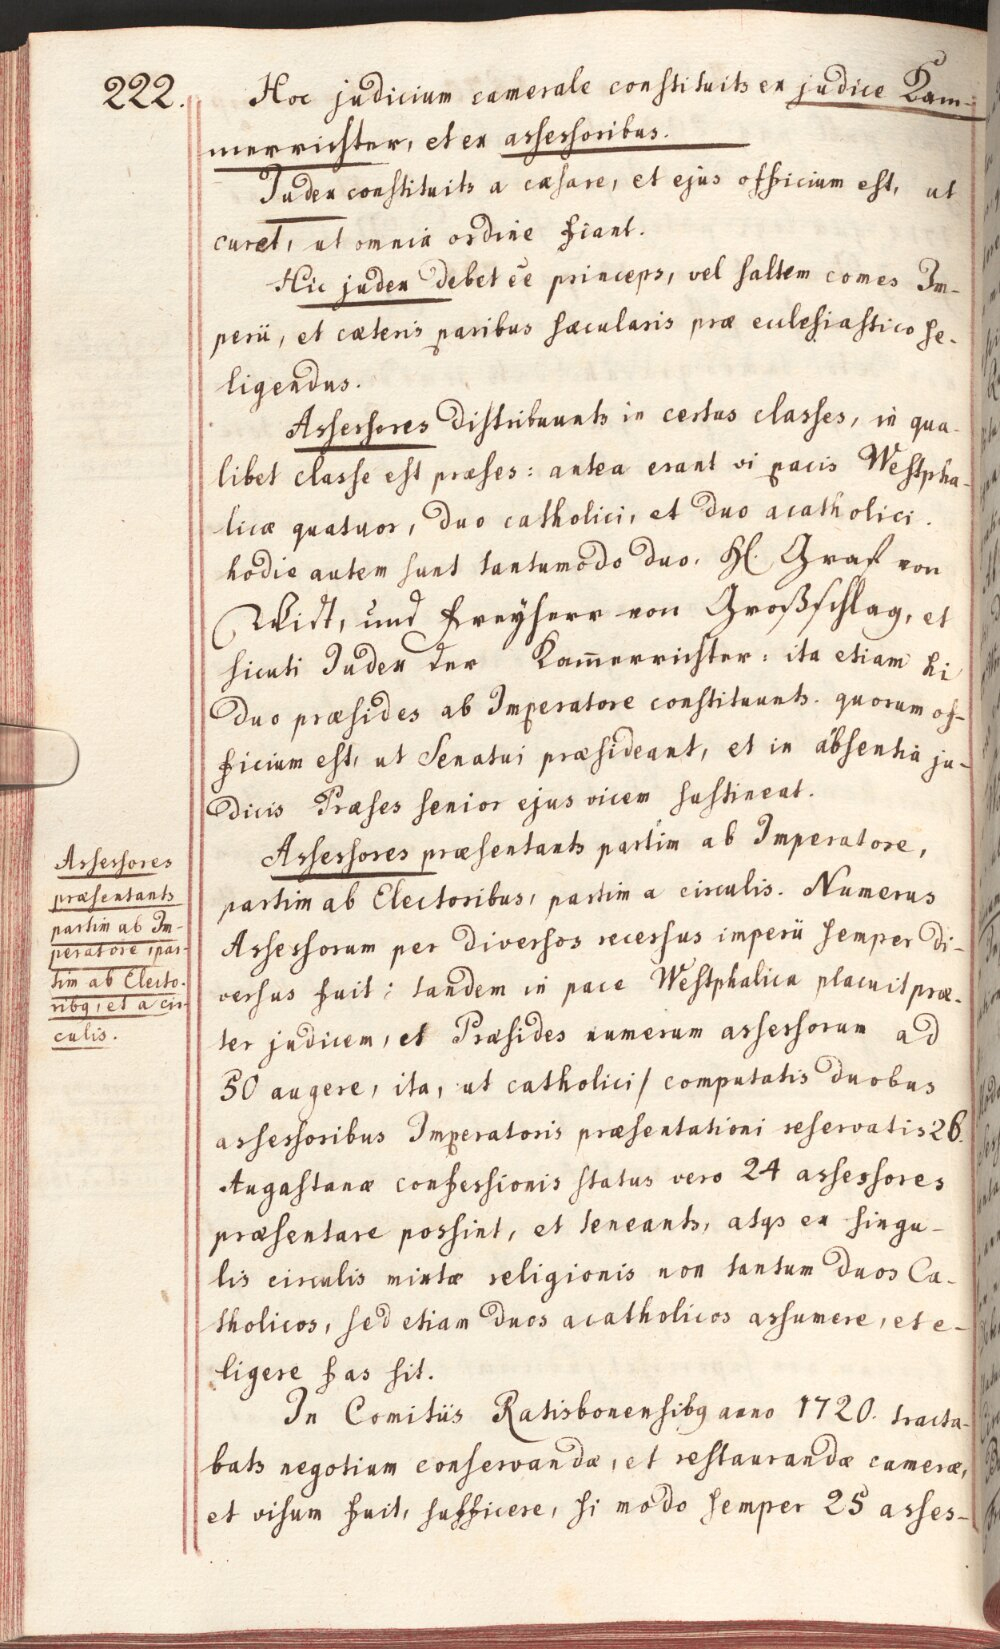 222.
Hoc judicium camerale constituits ex judice Kam-
merrichter, et ex assessoribus.
Judex constituits a cæsare, et ejus officium est, ut
curet, ut omnia ordine fiant.
Hic judex debet ēe princeps, vel saltem comes Im-
perii, et cæteris paribus sæcularis præ ecclesiastico se-
ligendus.
Assessores distribuunts in certas classes, in qua-
libet classe est præses: antea erant vi pacis Westpha-
licæ quatuor, duo catholici, et duo acatholici.
hodie autem sunt tantumodo duo. Hl. Graf von
Widt, und Freyherr von Großschlag, et
sicuti Judex der Kam̄errichter: ita etiam hi
duo præsides ab Imperatore constituunts. quorum of-
ficium est, ut Senatui præsideant, et in absentia ju-
dicis Præses senior ejus vicem sustineat.
Assessores præsentants partim ab Imperatore,
partim ab Electoribus, partim a circulis. Numerus
Assessorum per diversos recessus imperii semper di-
versus fuit; tandem in pace Westphalica placuit præ-
ter judicem, et Præsides numerum assessorum ad
50 augere, ita, ut catholici / computatis duobus
assessoribus Imperatoris præsentationi reservatis 26.
Augastanæ confessionis status vero 24 assessores
præsentare possint, et teneants, atqs ex singu-
lis circulis mixtæ religionis non tantum duos Ca-
tholicos, sed etiam duos acatholicos assumere, et e-
ligere fas sit.
In Comitiis Ratisbonensibq anno 1720. tracta-
bats negotium conservandæ, et restaurandæ cameræ,
et visum fuit, sufficere, si modo semper 25 asses-
Assessores
præsentants
partim ab Im-
peratore, par-
tim ab Electo-
ribq, et a cir-
culis.